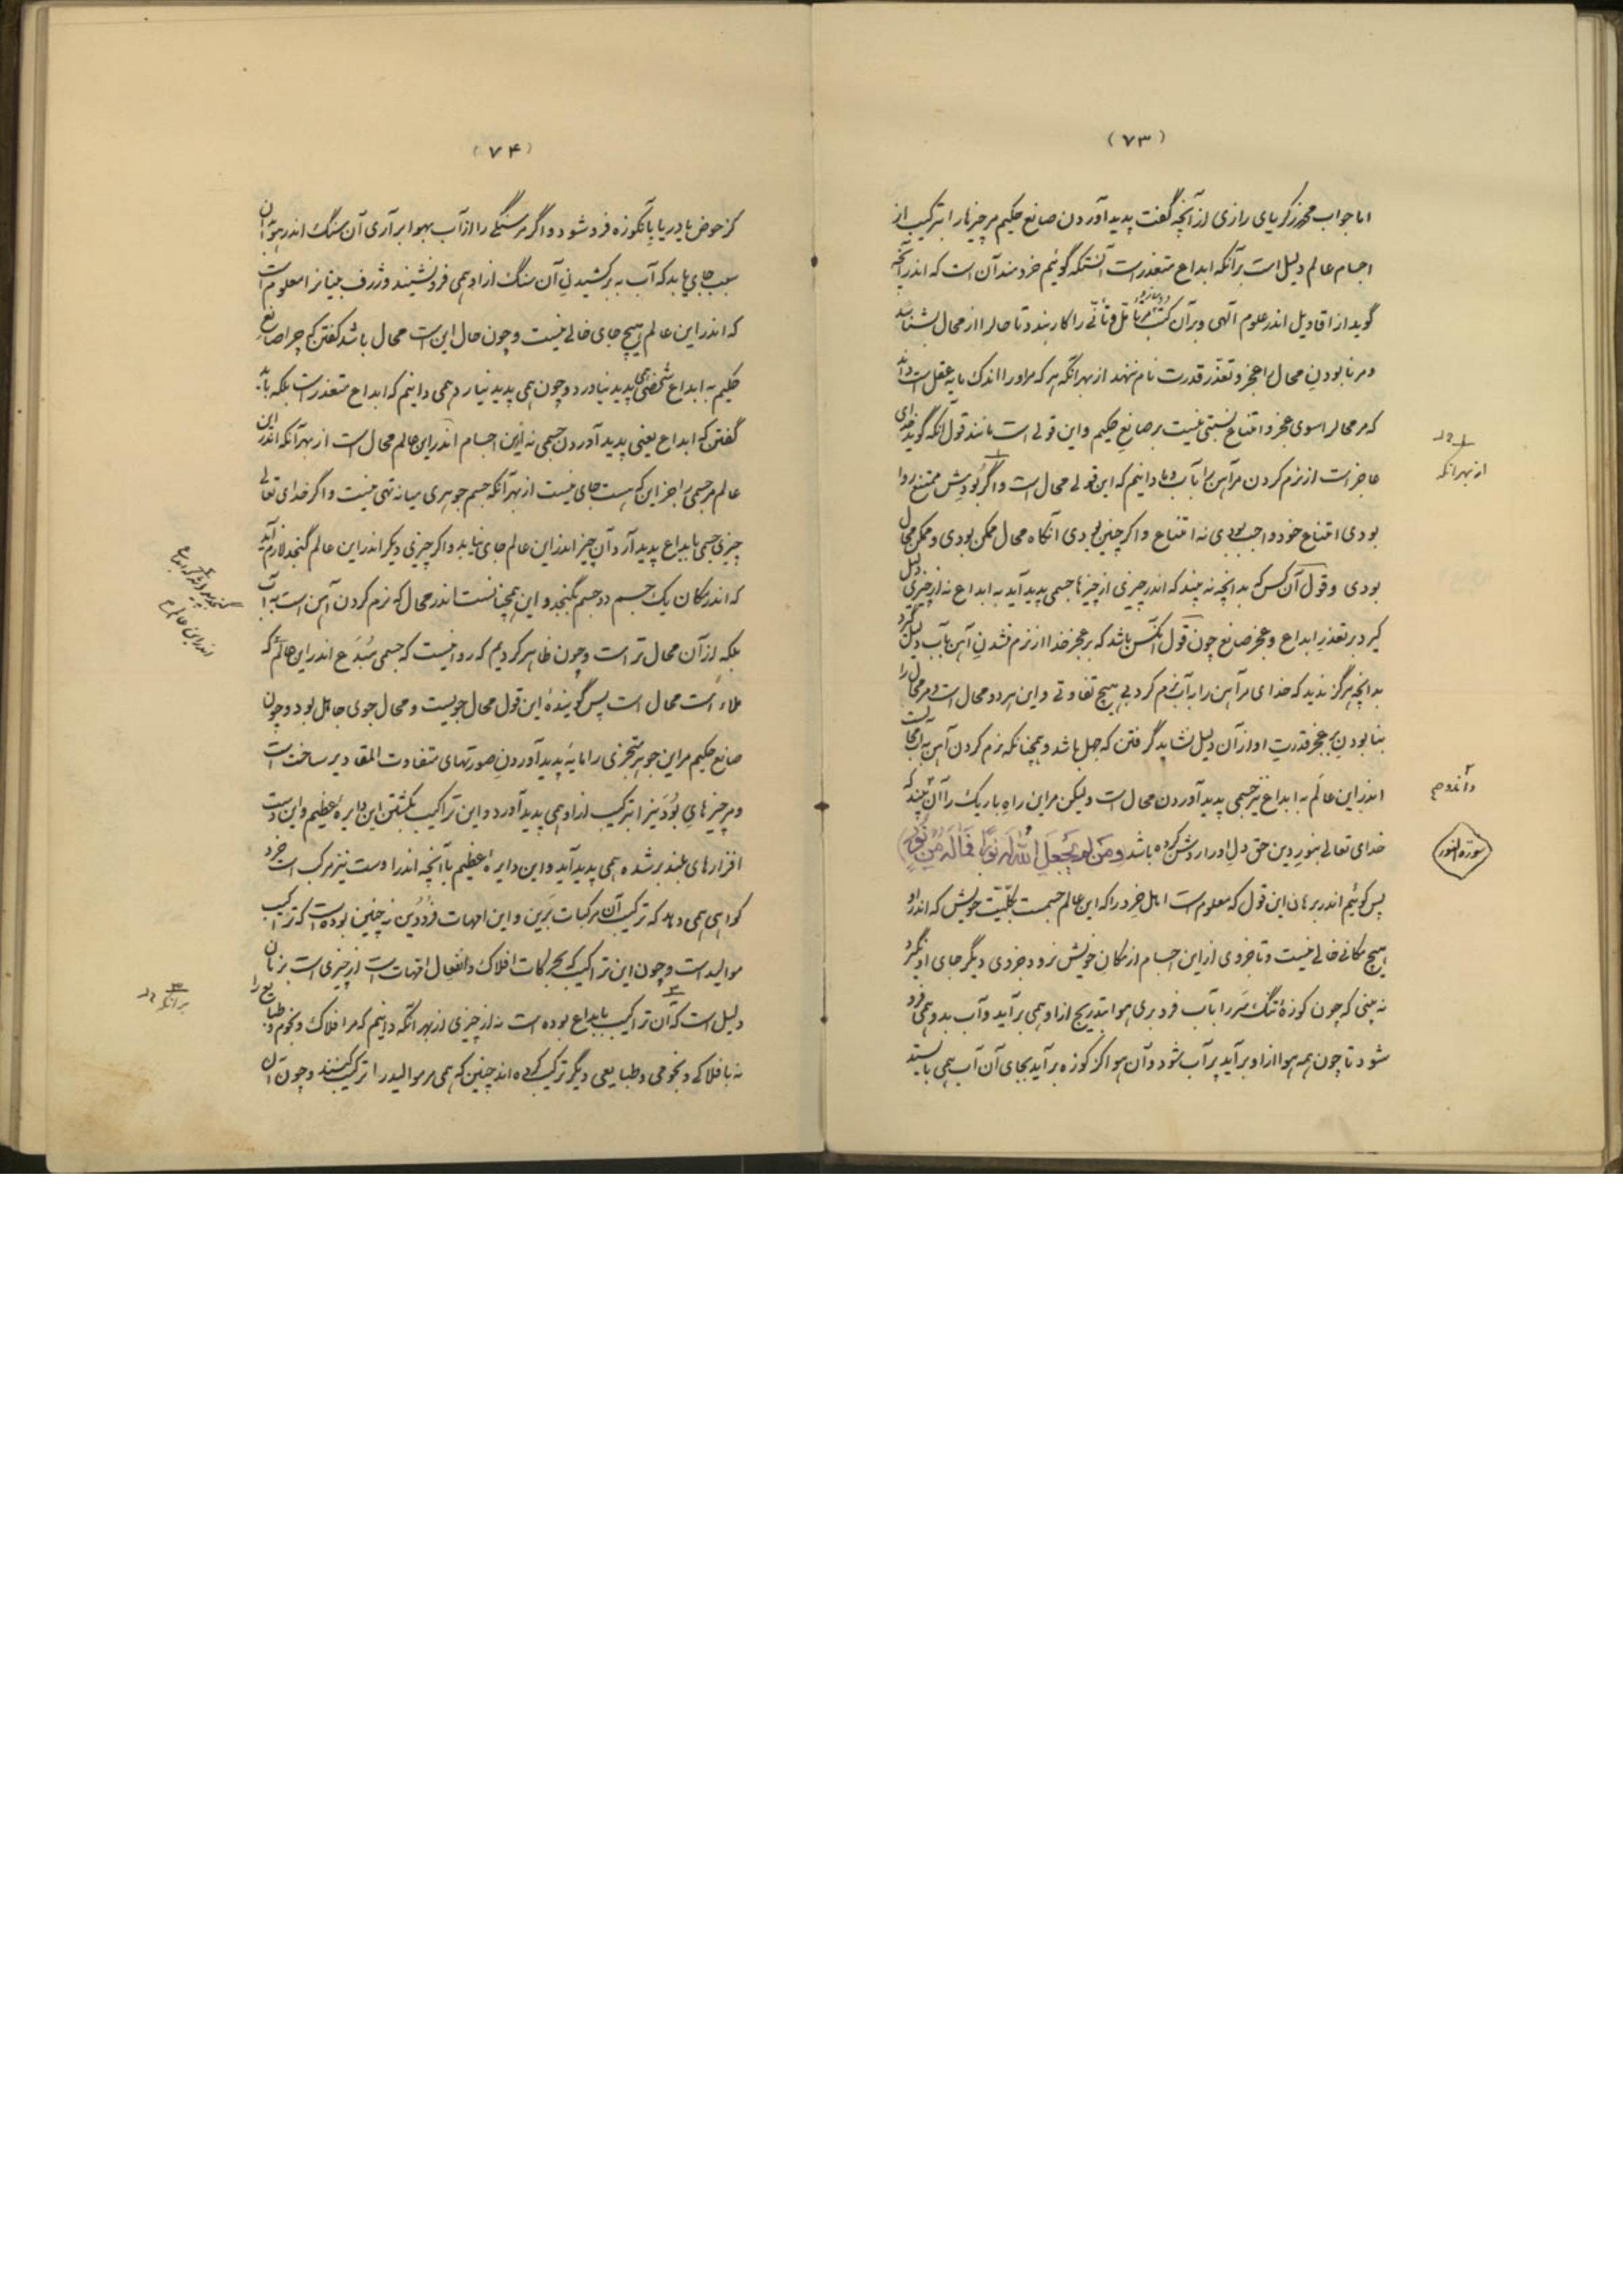 (۷۳)
اما جواب محمد زکریای رازی از آنچه گفت پدید آوردن صانع حکیم مر چیزها را بترکیب از
اجسام عالم دلیل است برآنکه ابداع متعذر است آنستکه گوئیم خردمند آن است که اندر آنچه
گوید از اقاویل اندر علوم الهی و بر آن کتب سازد مر تأمل و تأنی را کار بندد تا حال را از محال بشناسد
و مر نابودن محال را عجز و تعذر قدرت نام ننهد از بهر آنکه هر که مر او را اندک مایه عقل است داند
که مر محال را سوی عجز و امتناع نسبتی نیست بر صانع حکیم و این قولی است مانند قول آنکه گوید خدای
عاجز است از نرم کردن مر آهن را بآب و ما دانیم که این قولی محال است و اگر بودش ممتنع روا
بودی امتناع خود واجب بودی نه امتناع و اگر چنین بودی آنگاه محال ممکن بودی و ممکن محال
بودی و قول آن کس که بدانچه نه بیند که اندر چیزی از چیزها جسمی پدید آید به ابداع نه از چیزی دلیل
گیرد بر تعذر ابداع و عجز صانع چون قول آنکس باشد که بر عجز خدا از نرم نشدن آهن بآب دلیل گیرد
بدانچه هرگز ندید که خدای مر آهن را به آب نرم کرد بی هیچ تفاوتی و این هر دو محال است و مر محال را
بنابودن بر عجز قدرت او از آن دلیل نشاید گرفتن که جهل باشد و همچنانکه نرم کردن آهن به آب محالست
اندر این عالم به ابداع نیز جسمی پدید آوردن محال است ولیکن مر این راه باریک را آن بیند که
خدای تعالی بنور دین حق دل او را روشن کرده باشد ومن لم یجعل الله له نورا فما له من نور
پس گوئیم اندر برهان این قول که معلوم است اهل خرد را که این عالم جسمست بکلیت خویش که اندر او
هیچ مکانی خالی نیست و تا جزوی از این اجسام از مکان خویش نرود جزوی دیگر جای او نگیرد
نه بینی که چون کوزهٔ تنگ سر را بآب فرو بری هوا بتدریج از او همی برآید و آب بدو همی فرو
شود تا چون همه هوا از او برآید پر آب شود و آن هوا کز کوزه برآید بجای آن آب همی بایستد
از بهر آنکه
سورة النور
(۷۴)
کز حوض یا دریا بآنکوزه فرو شود و اگر مر سنگی را از آب بهوا برآری آن سنگ اندر هوا بدان
سبب جای یابد که آب به برکشیدن آن سنگ از او همی فرو نشیند و ژرف بینانرا معلوم است
که اندر این عالم هیچ جای خالی نیست و چون حال این است محال باشد گفتن که چرا صانع
حکیم به ابداع شخصی پدید نیاورد و چون همی پدید نیارد همی دانیم که ابداع متعذر است بلکه باید
گفتن که ابداع یعنی پدید آوردن جسمی نه از این اجسام اندر این عالم محال است از بهر آنکه اندر این
عالم مر جسمی را جز این که هست جای نیست از بهر آنکه جسم جوهری میانه تهی نیست و اگر خدای تعالی
چیزی جسمی بابداع پدید آرد آن چیز اندر این عالم جای نیابد و اگر چیزی دیگر اندر این عالم گنجد لازم آید
که اندر مکان یک جسم دو جسم بگنجد و این همچنانست اندر محال که نرم کردن آهن است به آب
بلکه از آن محال تر است و چون ظاهر کردیم که روا نیست که جسمی مبدع اندر این عالم که
ملاء است محال است پس گویندهٔ این قول محال جویست و محال جوی جاهل بود و چون
صانع حکیم مر این جوهر متجزی را مایهٔ پدید آوردن صورتهای متفاوت المقادیر ساخت است
و مر چیزهای بودنیرا بترکیب از او همی پدید آورد و این تراکیب بگشتن این دایرهٔ عظیم و این دست
افزارهای بلند بر شده همی پدید آید و این دایرهٔ عظیم با آنچه اندر اوست نیز مرکب است خرد
گواهی همی دهد که ترکیب آن مرکبات برین و این امهات فرودین نه چنین بوده است که ترکیب
موالید است و چون این تراکیب که بحرکات افلاک و انفعال امهات است از چیزی است بزمان
دلیل است که آن تراکیب بابداع بوده است نه از چیزی از بهر آنکه دانیم که مر افلاک و نجوم و طبایع را
نه بافلاکی و نجومی و طبایعی دیگر ترکیب کرده اند چنین که همی مر موالید را ترکیب کنند و چون آن
برآنکه